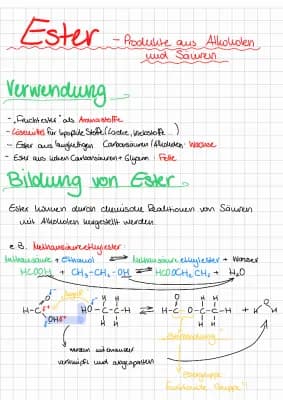 Ester - Produkte aus Alkoholen
und Säuren
Verwendung
- "Fruchtester" als Aromastoffe
- Lösemittel für lipophile Stoffe (Lacke, Klebstoffe...)
- Ester aus langkettigen Carbonsäuren/Alkoholen: Wachse
- Ester aus hohen Carbonsäuren + Glycerin: Fette
Bildung von Ester
Ester können durch chemische Reaktionen von Säuren
mit Alkoholen hergestellt werden.
z.B. Methansäureethylester:
Methansäure + Ethanol ⇌ Methansäureethylester + Wasser
HCOOH + CH₃-CH₂-OH ⇌ HCOOCH₂CH₃ + H₂O
Angriff
O δ- H H O H H
H-C δ+ HO-C-C-H ⇌ H-C O-C-C-H + H O H
OH δ- H H H H
werden miteinander
verknüpft und abgespalten
Esterbindung
Estergruppe
(funktionelle Gruppe!)